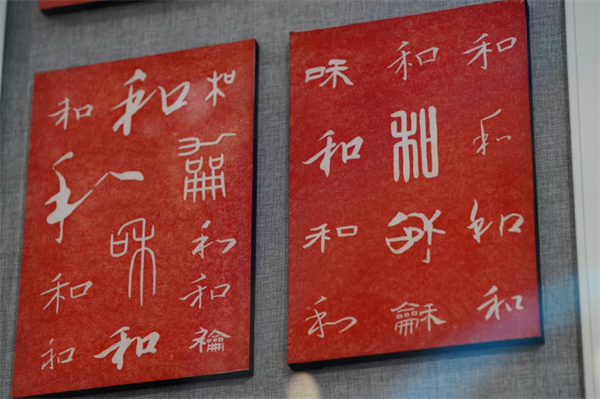 和 和 和
和
咊 和
和 和
和 和 龢
咊 和 和
和 和 和
和 咊 和
和 龢 和